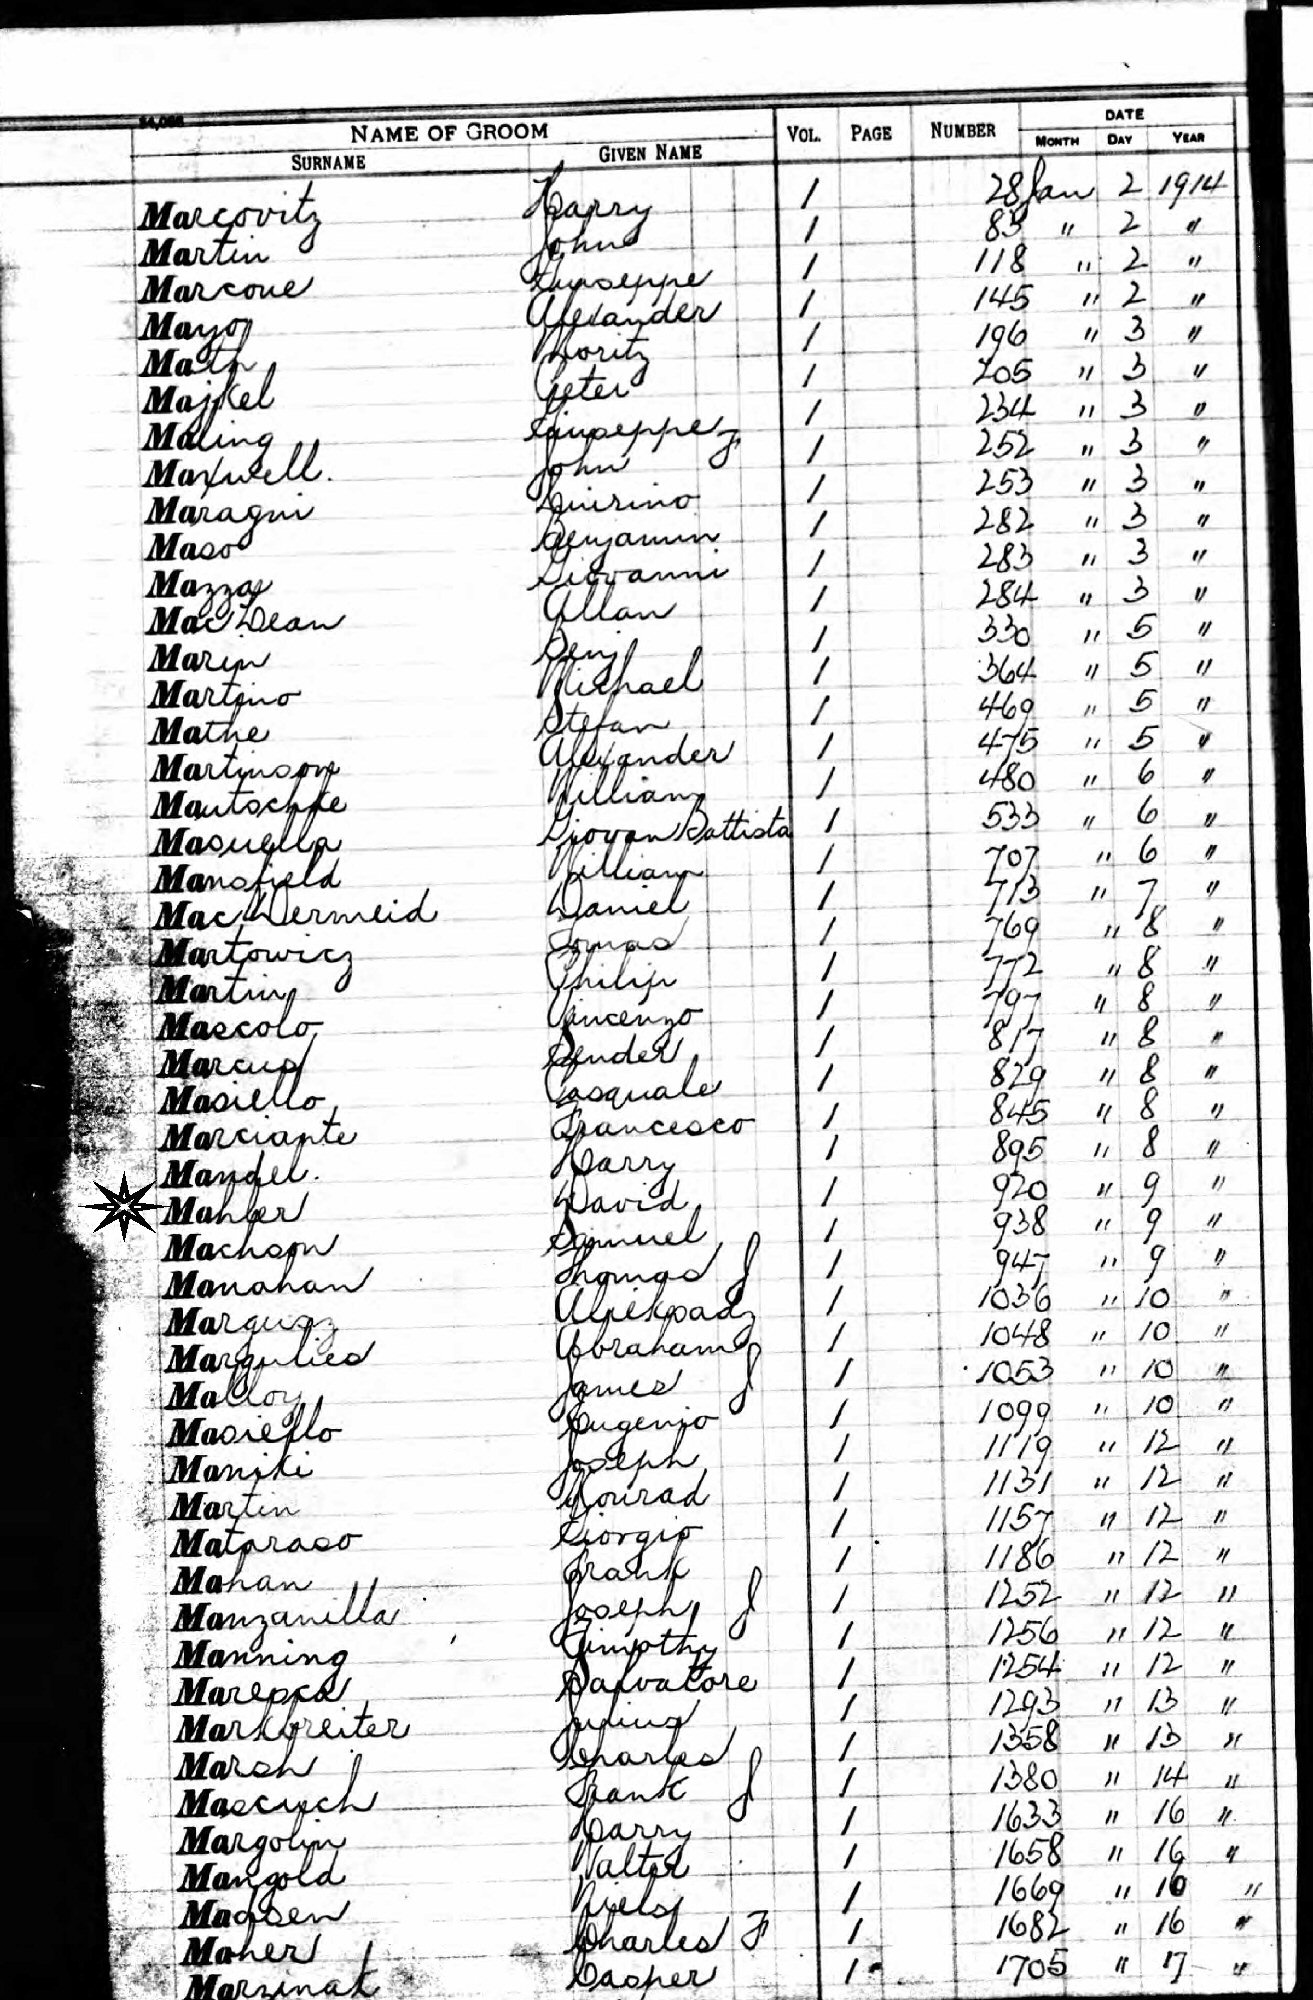 34,098
NAME OF GROOM VOL. PAGE NUMBER DATE
SURNAME GIVEN NAME MONTH DAY YEAR
Marcovitz Harry 1 28 Jan 2 1914
Martin John 1 83 " 2 "
Marcone Giuseppe 1 118 " 2 "
Mayo Alexander 1 145 " 2 "
Math Moritz 1 196 " 3 "
Majkel Peter 1 205 " 3 "
Maling Giuseppe 1 234 " 3 "
Maxwell John F 1 252 " 3 "
Maragni Quirino 1 253 " 3 "
Maso Benjamin 1 282 " 3 "
Mazza Giovanni 1 283 " 3 "
Mac Dean Allan 1 284 " 3 "
Marin Benj 1 330 " 5 "
Martino Michael 1 364 " 5 "
Mathe Stefan 1 469 " 5 "
Martinson Alexander 1 475 " 5 "
Mautschke William 1 480 " 6 "
Masuella Giovan Battista 1 533 " 6 "
Mansfield William 1 707 " 6 "
Mac Dermeid Daniel 1 713 " 7 "
Martowicz Tomas 1 769 " 8 "
Martin Philip 1 772 " 8 "
Mascolo Vincenzo 1 797 " 8 "
Marcus Sender 1 817 " 8 "
Masiello Pasquale 1 829 " 8 "
Marciante Francesco 1 845 " 8 "
Mandel Harry 1 895 " 8 "
Mahler David 1 920 " 9 "
Machson Samuel 1 938 " 9 "
Manahan Thomas J 1 947 " 9 "
Marguaz 1 1036 " 10 "
Margulies Abraham 1 1048 " 10 "
Malloy James J 1 1053 " 10 "
Masiello Eugenio 1 1099 " 10 "
Maniki Joseph 1 1119 " 12 "
Martin Konrad 1 1131 " 12 "
Mataraso Giorgio 1 1157 " 12 "
Mahan Frank 1 1186 " 12 "
Manzanilla Joseph J 1 1252 " 12 "
Manning Timothy 1 1256 " 12 "
Maresca Salvatore 1 1254 " 12 "
Markbreiter Julius 1 1293 " 13 "
Marsh Charles 1 1358 " 13 "
Mascuch Frank J 1 1380 " 14 "
Margolin Harry 1 1633 " 16 "
Mangold Walter 1 1658 " 16 "
Madsen Niels 1 1669 " 16 "
Maher Charles F 1 1682 " 16 "
Marzinak Casper 1 1705 " 17 "